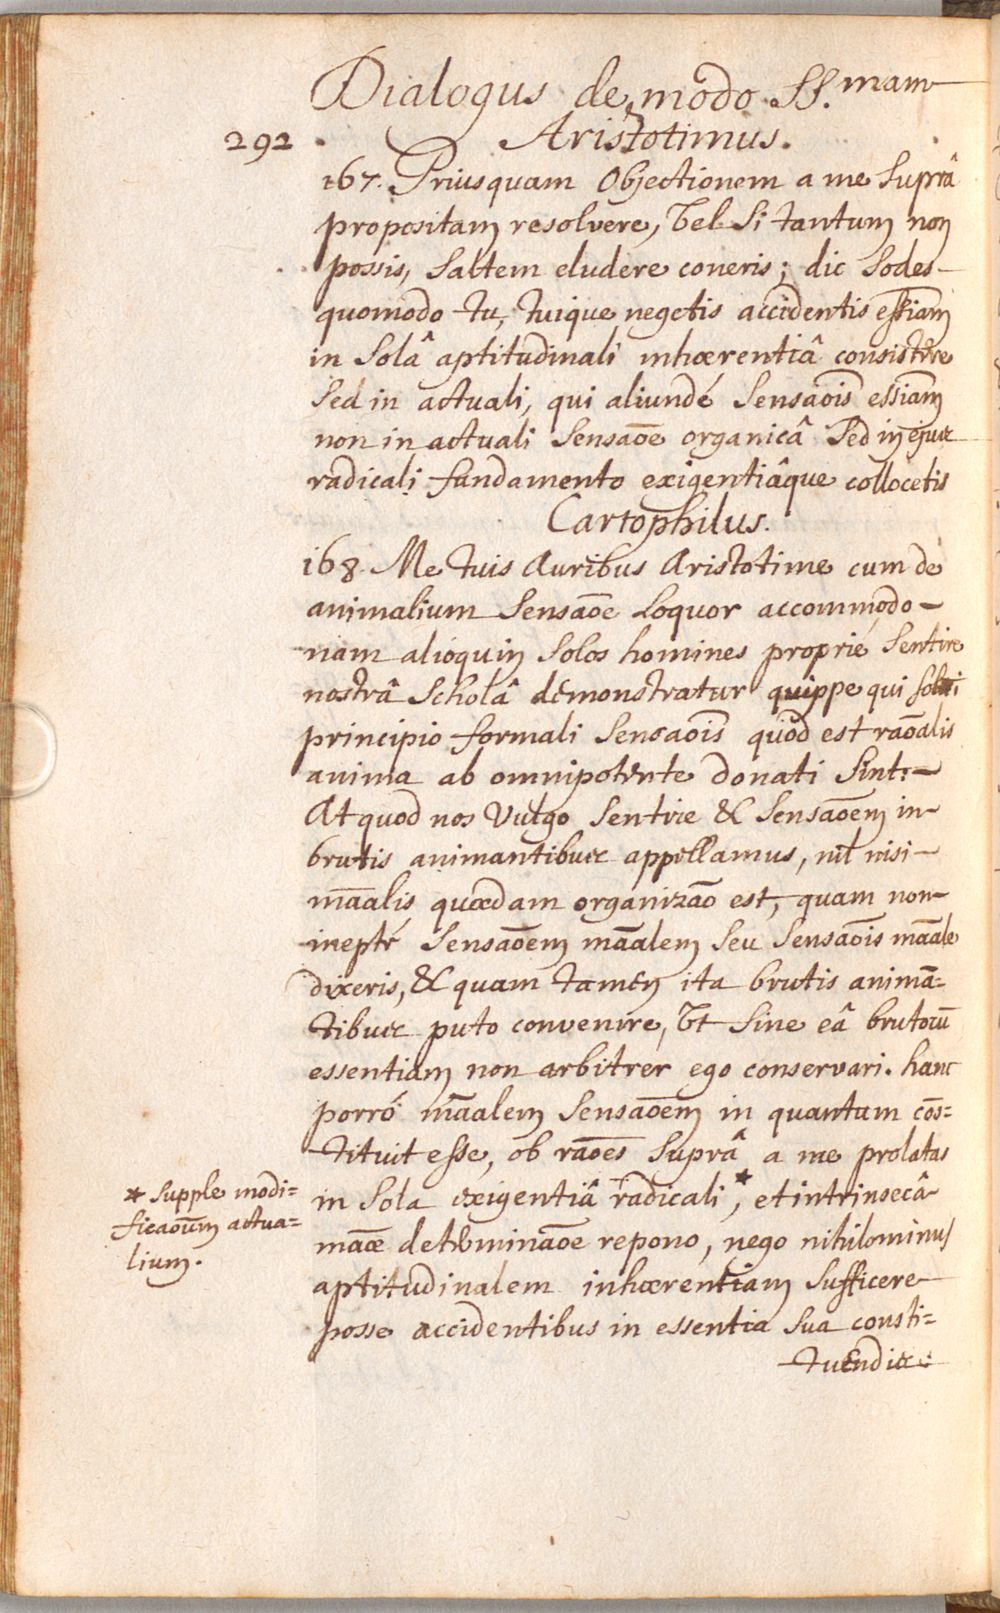 Dialogus de modo SS. mam
292
Aristotimus.
167. Priusquam Objectionem a me Suprâ
propositam resolvere, Vel Si tantum non
possis, Saltem eludere coneris; dic Sodes
quomodo tu, tuique negetis accidentis essiam̄
in Solâ aptitudinali inhærentiâ consistere
Sed in actuali, qui aliundé Sensaōis essiam̄
non in actuali Sensaōe organicâ Sed in ejus
radicali fundamento exigentiâque collocetis
Cartophilus.
168. Me tuis Auribus Aristotime cum de
animalium Sensaōe Loquor accommodo
nam alióquin Solos homines proprié Sentire
nostrâ Scholâ demonstratur quippe qui soli
principio formali Sensaōis quod est raōalis
anima ab omnipotente donati Sint:
At quod nos Vulgo Sentire & Sensaōem in
brutis animantibus appellamus, nil nisi
māalis quædam organizaō est, quam non
inepté Sensaōem māalem Seu Sensaōis māale
dixeris, & quam tamen ita brutis animā=
tibus puto convenire, Vt Sine eâ brutorū
essentiam non arbitrer ego conservari. hanc
porró māalem Sensaōem in quantum cōs=
tituit esse, ob raōes Suprâ a me prolatas
in Sola exigentiâ radicali*, et intrinsecâ
māæ determinaōe repono, nego nihilominus
aptitudinalem inhærentiam Sufficere
posse accidentibus in essentia Sua consti=
tuendis:
* Supple modi=
ficaoūm actua=
lium.